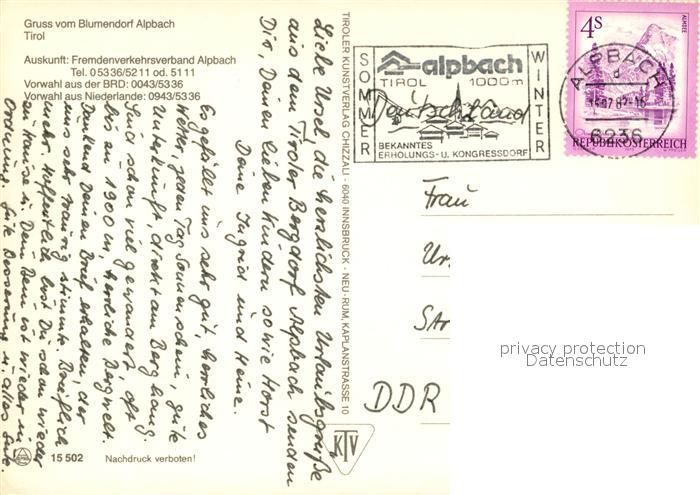 Gruss vom Blumendorf Alpbach
Tirol
Auskunft: Fremdenverkehrsverband Alpbach
Tel. 05336/5211 od. 5111
Vorwahl aus der BRD: 0043/5336
Vorwahl aus Niederlande: 0943/5336
Liebe Ursel, die herzlichsten Urlaubsgrüße
aus dem Tiroler Bergdorf Alpbach senden
Dir, Deinen lieben Kindern sowie Horst
Deine Ingrid und Heinz.
Es gefällt uns sehr gut, herrliches
Wetter, jeden Tag Sonnenschein, gute
Unterkunft, direkt am Berghang.
Sind schon viel gewandert oft
bis an 1900 m, herrliche Bergwelt.
Dankend Deinen Brief erhalten, der
uns sehr traurig stimmte. Begreiflich
mehr. Hoffentlich bist Du schon wieder
zu Hause u. Dein Bein ist wieder in
Ordnung. Gute Besserung u. alles Gute.
15 502
Nachdruck verboten!
TIROLER KUNSTVERLAG CHIZZALI · 6040 INNSBRUCK - NEU-RUM, KAPLANSTRASSE 10
KTV
SOMMER
alpbach
TIROL 1000m
BEKANNTES
ERHOLUNGS- U. KONGRESSDORF
WINTER
Deutschland
4S
ALMSEE
REPUBLIK ÖSTERREICH
ALPBACH
d
6236
Frau
Ur.
DDR
privacy protection
Datenschutz